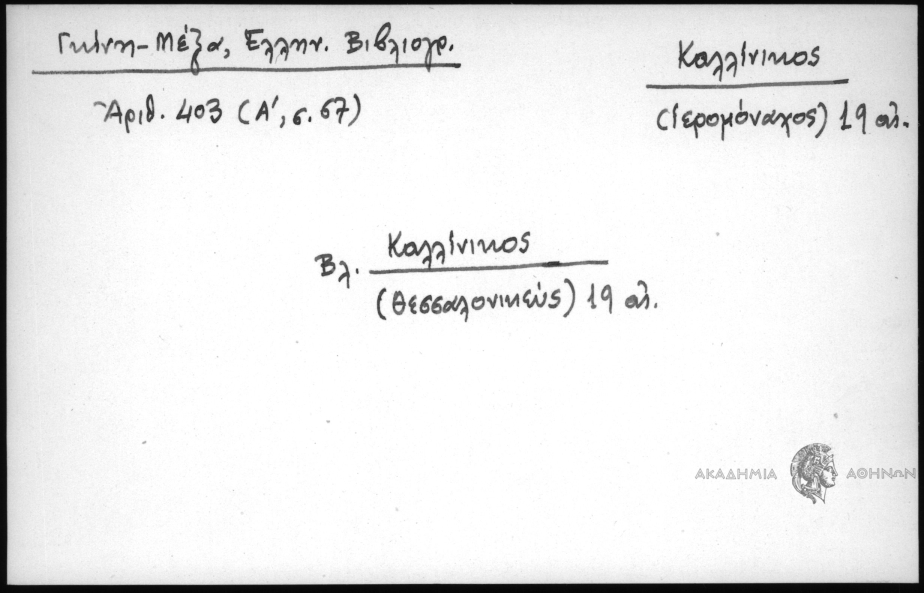 Γκίνη-Μέξα, Ἑλλην. Βιβλιογρ.
Ἀριθ. 403 (Α΄, σ. 67)
Καλλίνικος
(Ἱερομόναχος) 19 αἰ.
Βλ. Καλλίνικος
(Θεσσαλονικεύς) 19 αἰ.
ΑΚΑΔΗΜΙΑ ΑΘΗΝΩΝ